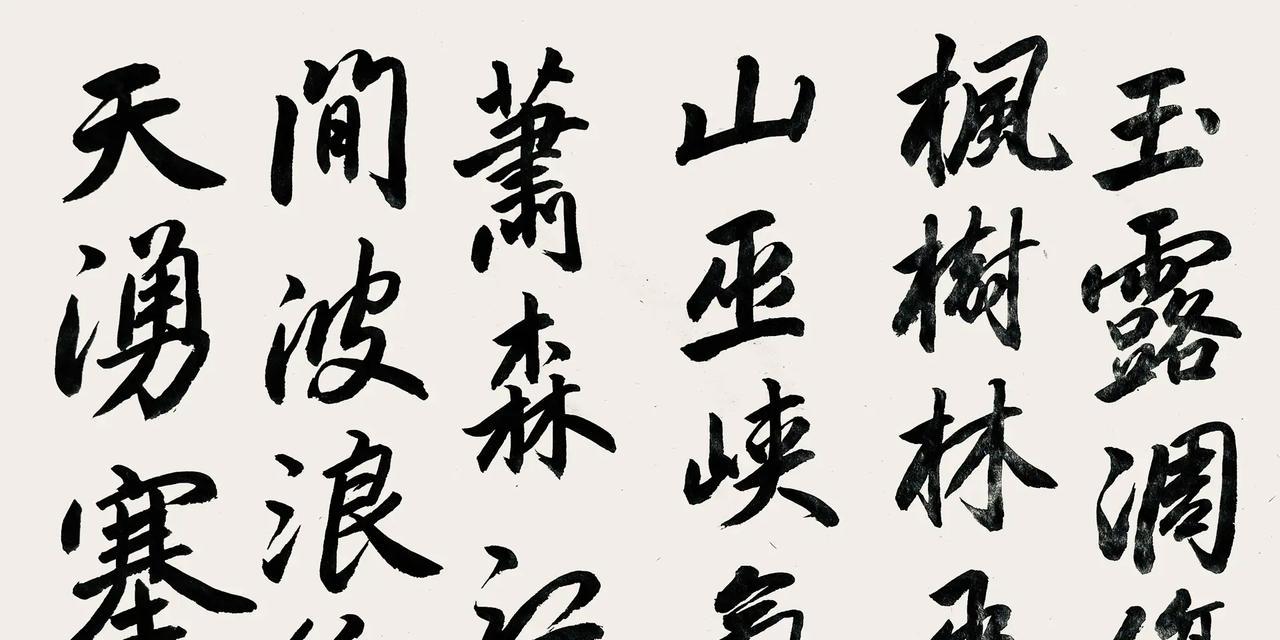 玉露凋
楓樹林
山巫峽
蕭森
間波浪
天湧塞